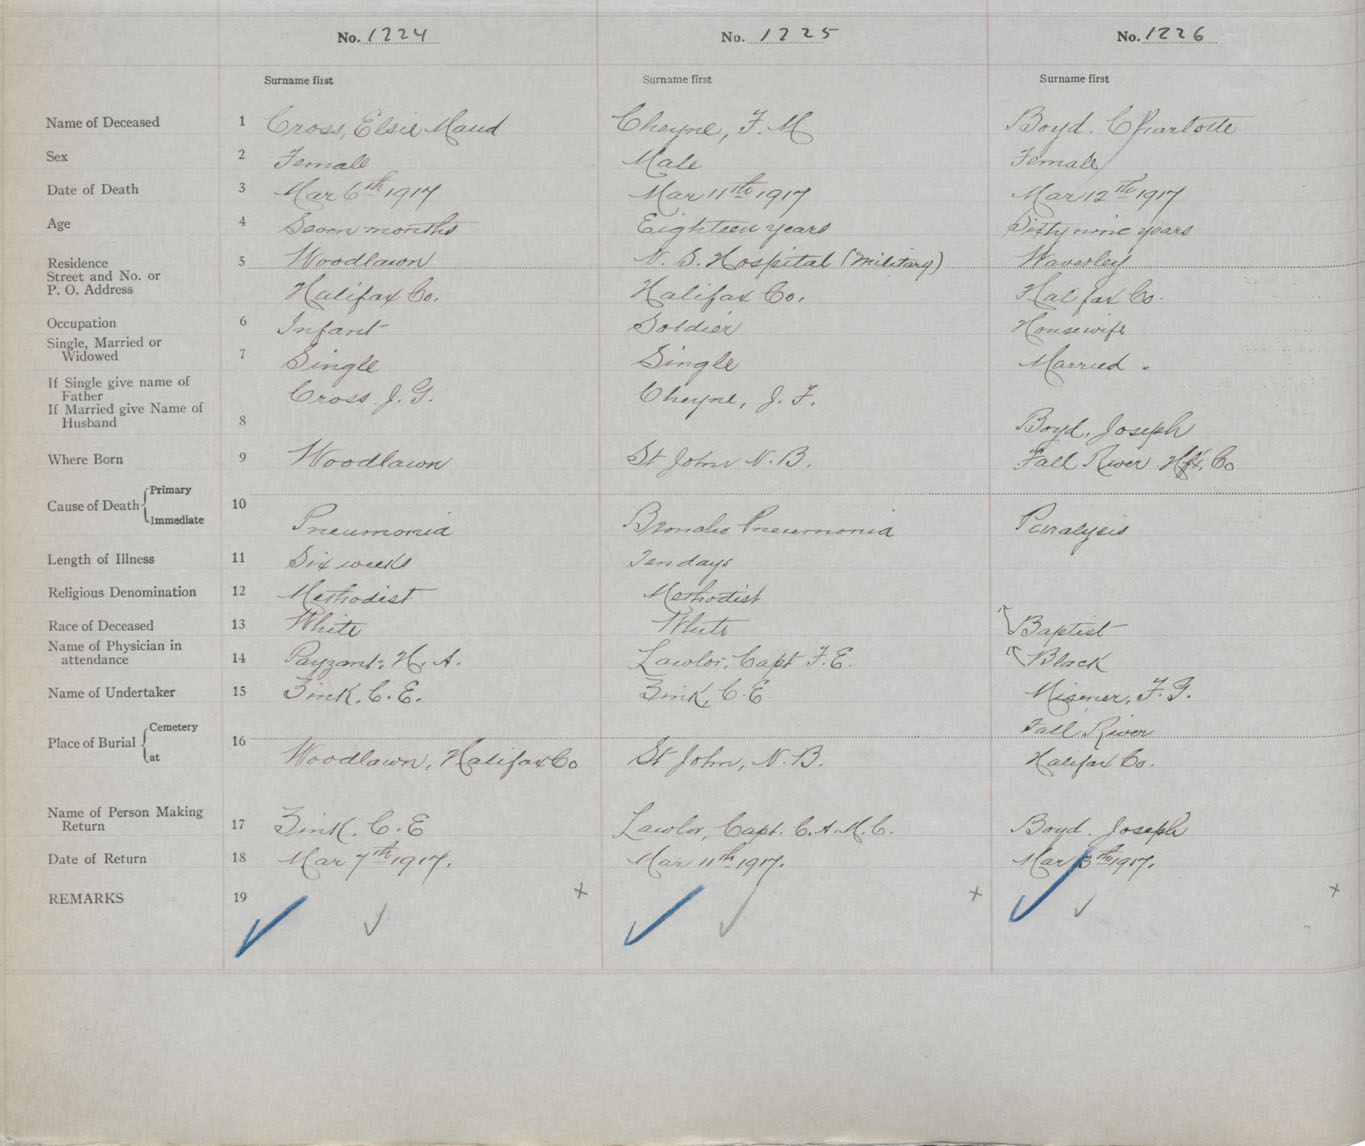 No. 1224 No. 1225 No. 1226
Surname first Surname first Surname first
Name of Deceased 1 Cross, Elsie Maud Cheyne, F. M Boyd. Charlotte
Sex 2 Female Male Female
Date of Death 3 Mar 6th 1917 Mar 11th 1917 Mar 12th 1917
Age 4 Seven months Eighteen years Sixty nine years
Residence 5 Woodlawn N. S. Hospital (Military) Waverley
Street and No. or
P. O. Address Halifax Co. Halifax Co. Halifax Co.
Occupation 6 Infant Soldier Housewife
Single, Married or
Widowed 7 Single Single Married.
If Single give name of
Father Cross. J. G. Cheyne, J. F.
If Married give Name of
Husband 8 Boyd, Joseph
Where Born 9 Woodlawn St John N. B. Fall River Hfx. Co
Primary
Cause of Death 10
Immediate Pneumonia Broncho Pneumonia Paralysis
Length of Illness 11 Six weeks Ten days
Religious Denomination 12 Methodist Methodist
Race of Deceased 13 White White Baptist
Name of Physician in
attendance 14 Payzant, H. A. Lawlor, Capt F. E. Black
Name of Undertaker 15 Zink, C. E. Zink, C. E Misener, F. G.
Cemetery Fall River
Place of Burial 16
at Woodlawn, Halifax Co St John, N. B. Halifax Co.
Name of Person Making
Return 17 Zink. C. E Lawlor, Capt. C. A. M. C. Boyd. Joseph
Date of Return 18 Mar 7th 1917. Mar 11th 1917. Mar 13th 1917.
REMARKS 19 x x x